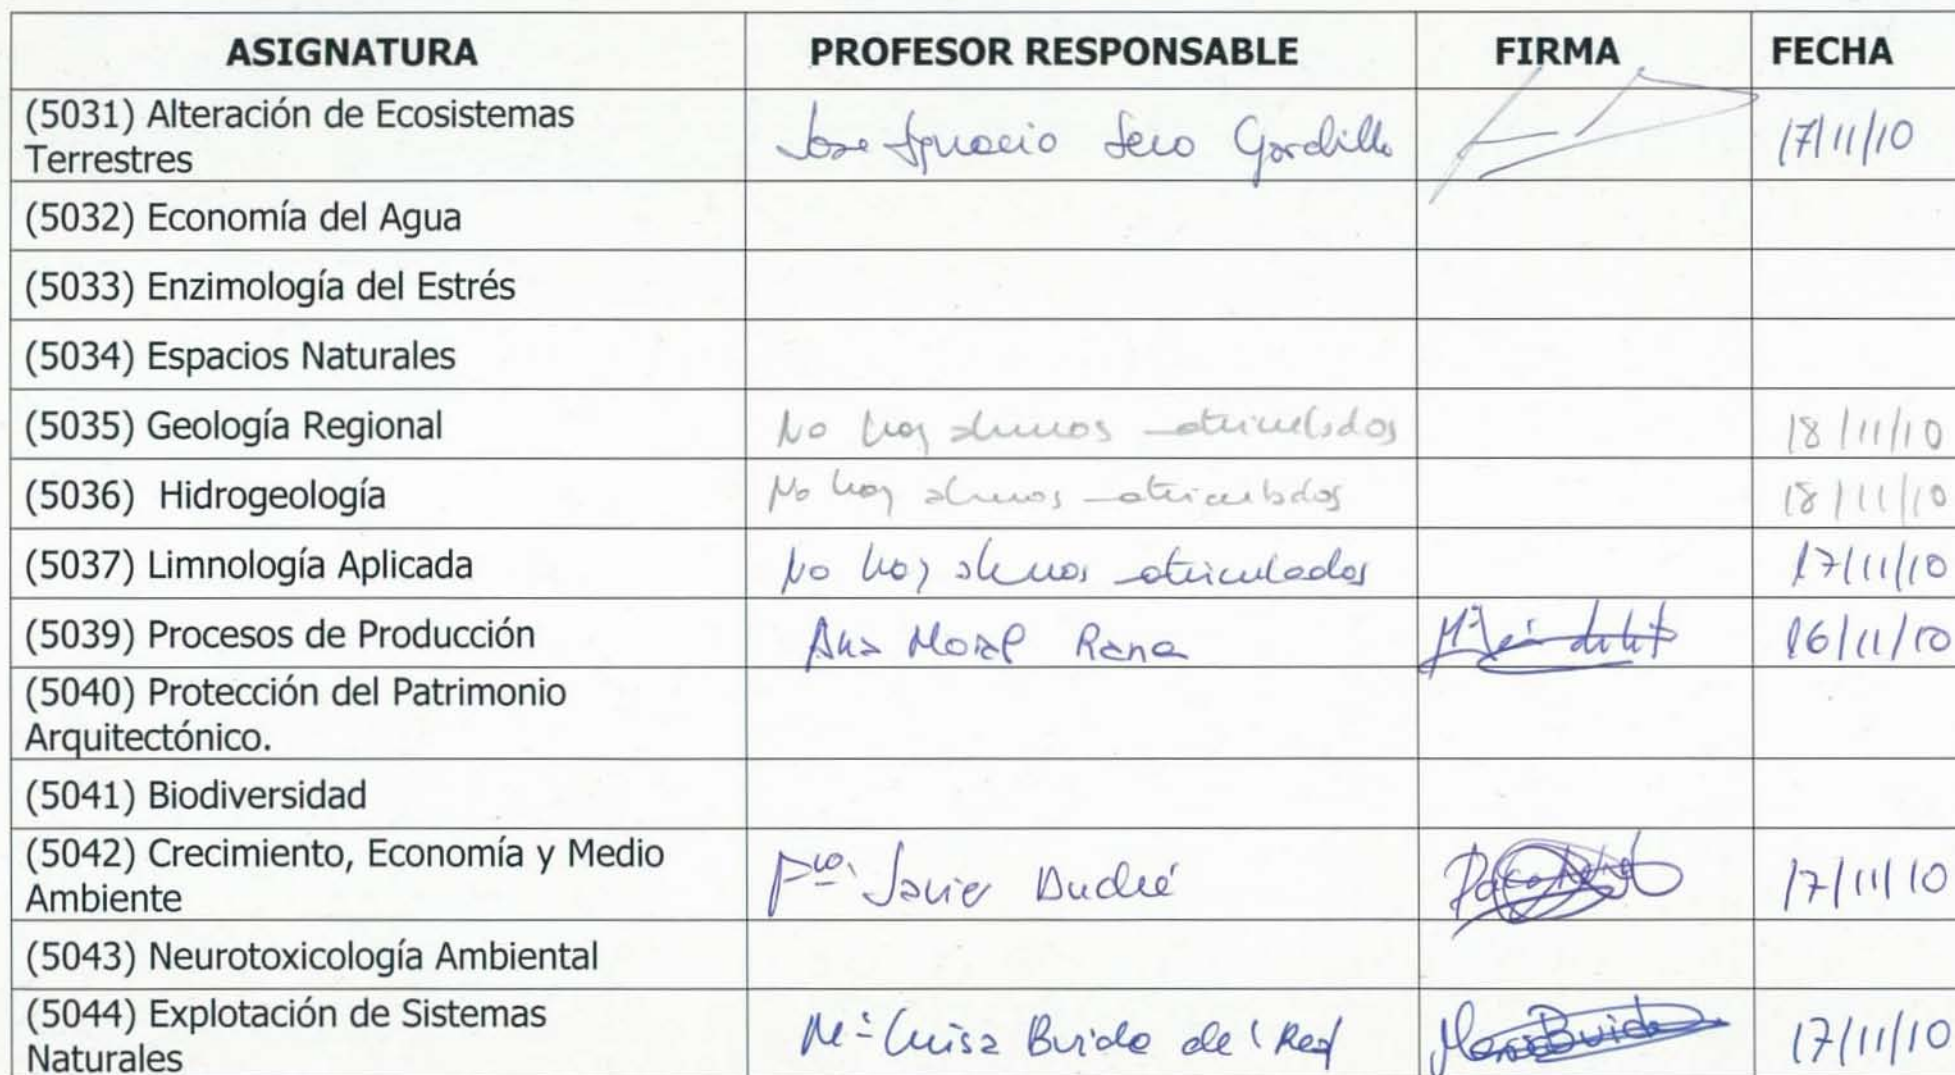 ASIGNATURA PROFESOR RESPONSABLE FIRMA FECHA
(5031) Alteración de Ecosistemas
Terrestres
Jose Ignacio Seco Gordillo 17/11/10
(5032) Economía del Agua
(5033) Enzimología del Estrés
(5034) Espacios Naturales
(5035) Geología Regional No hay alumnos matriculados 18/11/10
(5036) Hidrogeología No hay alumnos matriculados 18/11/10
(5037) Limnología Aplicada No hay alumnos matriculados 17/11/10
(5039) Procesos de Producción Ana Moral Rama 16/11/10
(5040) Protección del Patrimonio
Arquitectónico.
(5041) Biodiversidad
(5042) Crecimiento, Economía y Medio
Ambiente
Fco. Javier 17/11/10
(5043) Neurotoxicología Ambiental
(5044) Explotación de Sistemas
Naturales
Mª Luisa Buide del Real 17/11/10